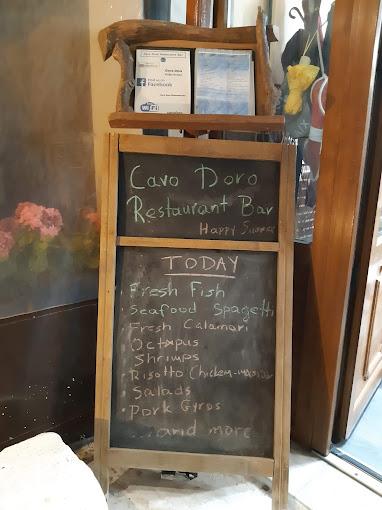 Find us on
Facebook
Wi Fi
Cavo Doro
Restaurant Bar
Happy Summer
TODAY
· Fresh Fish
· Seafood Spagetti
· Fresh Calamari
· Octapus
· Shrimps
· Risotto Chicken-
· Salads
· Pork Gyros
....and more